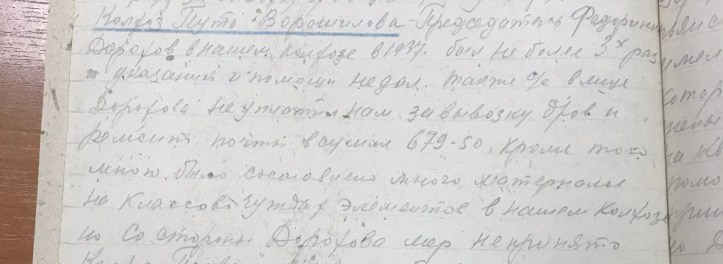 Колхоз Путь Ворошилова Председатель Федорино
Дорохов в нашем колхозе в 1937 был не более 3х раз
и указаний и помощи не дал. также же в лице
Дорохова не уплатил нам за вывозку дров и
ремонт почти в сумме 679-50, кроме того
мною было составлено много материалов
на классово чуждых элементов в нашем колхозе
но со стороны Дорохова мер не принято